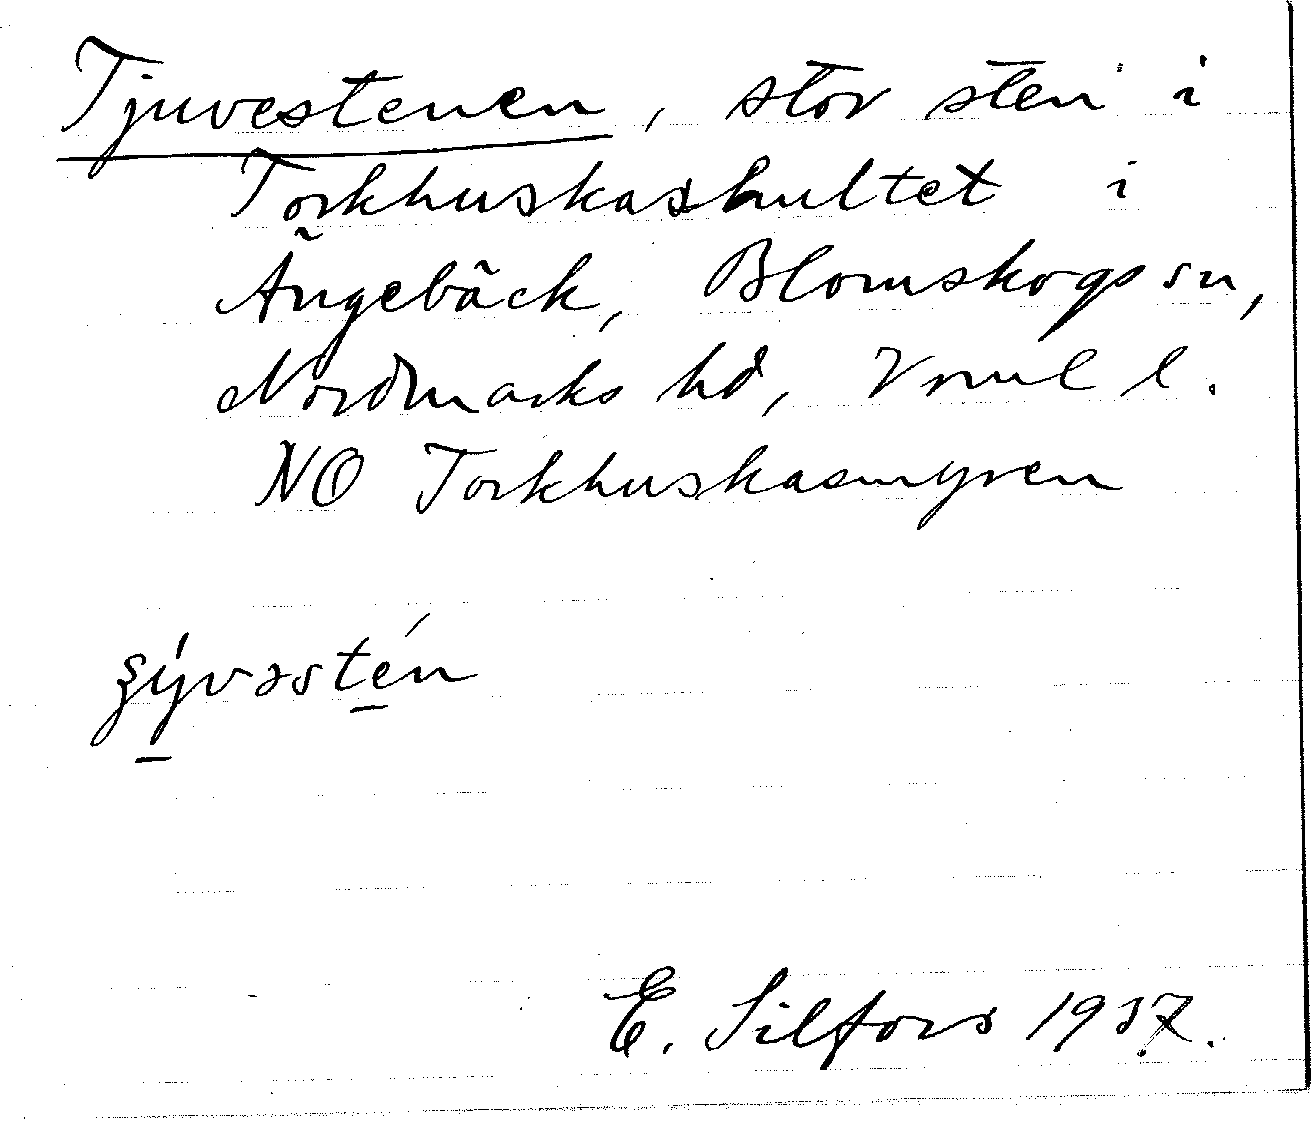 Tjuvestenen, stor sten i
Torkhuskashultet i
Ängebäck, Blomskogs sn,
Nordmarks hd, Vrml l.
NO Torkhuskasmyren
E. Silfors 1937.